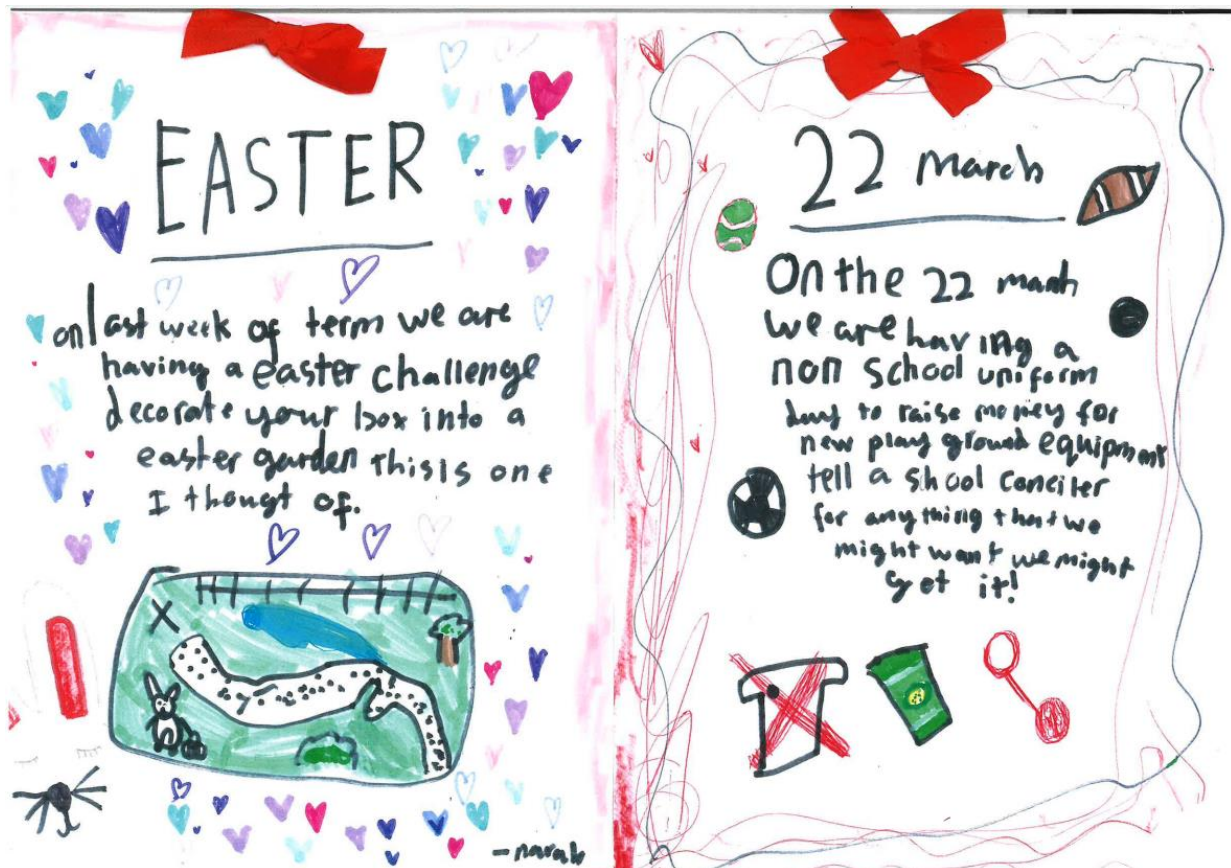 EASTER
on last week of term we are
having a easter challenge
decorate your box into a
easter garden this is one
I thougt of.
- narah
22 March
On the 22 march
we are having a
non school uniform
day to raise money for
new play ground equipment
tell a shool conciler
for any thing that we
might want we might
get it!